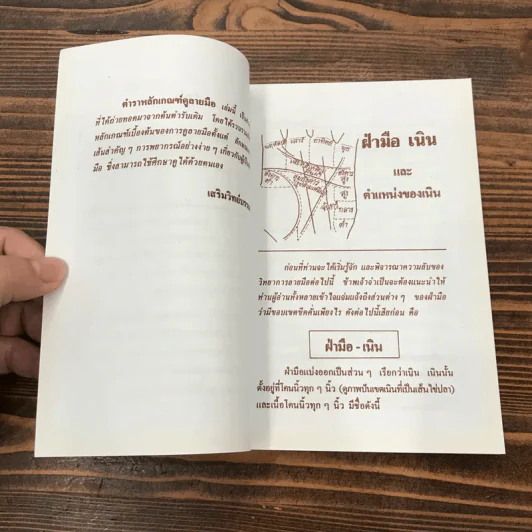 ตำราหลักเกณฑ์ดูลายมือ เล่มนี้
ที่ได้ถ่ายทอดมาจากต้นตำรับเดิม
หลักเกณฑ์เบื้องต้นของการดูลายมือตั้งแต่
เส้นสำคัญ ๆ การพยากรณ์อย่างง่าย ๆ
มือ ซึ่งสามารถใช้ศึกษาดูได้ด้วยตนเอง
ฝ่ามือ เนิน
และ
ตำแหน่งของเนิน
เสาร์
อาทิตย์
พุธ
ก่อนที่ท่านจะได้เริ่มรู้จัก และพิจารณาความลับของ
วิทยาการลายมือต่อไปนี้ ข้าพเจ้าจำเป็นจะต้องแนะนำให้
ท่านผู้อ่านทั้งหลายเข้าใจแจ่มแจ้งถึงส่วนต่าง ๆ ของฝ่ามือ
ว่ามีขอบเขตขีดคั่นเพียงไร ดังต่อไปนี้เสียก่อน คือ
ฝ่ามือ - เนิน
ฝ่ามือแบ่งออกเป็นส่วน ๆ เรียกว่าเนิน เนินนั้น
ตั้งอยู่ที่โคนนิ้วทุก ๆ นิ้ว (ดูภาพปันเขตเนินที่เป็นเส้นไข่ปลา)
และเนื้อโคนนิ้วทุก ๆ นิ้ว มีชื่อดังนี้